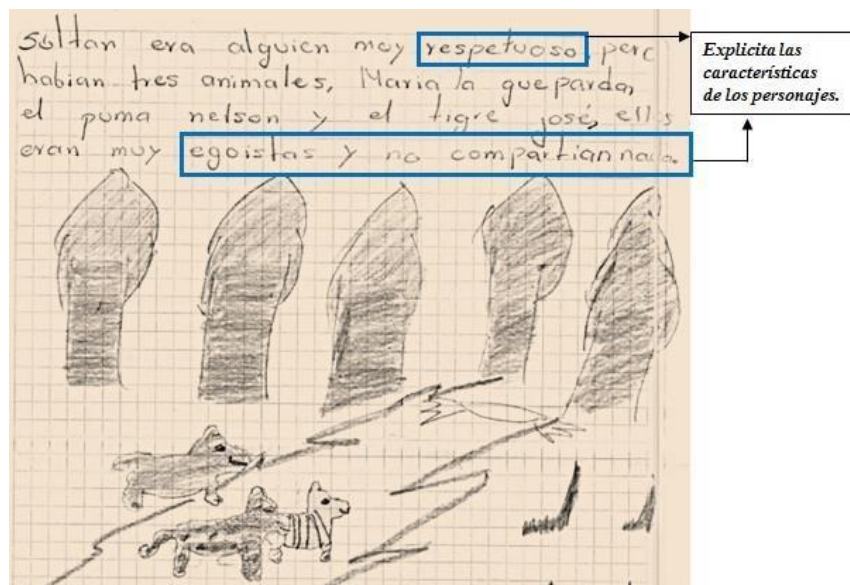 soltan era alguien muy respetuoso, pero
habian tres animales, Maria la gueparda,
el puma nelson y el tigre josé, ellos
eran muy egoistas y no compartian nada.
Explicita las
características
de los personajes.